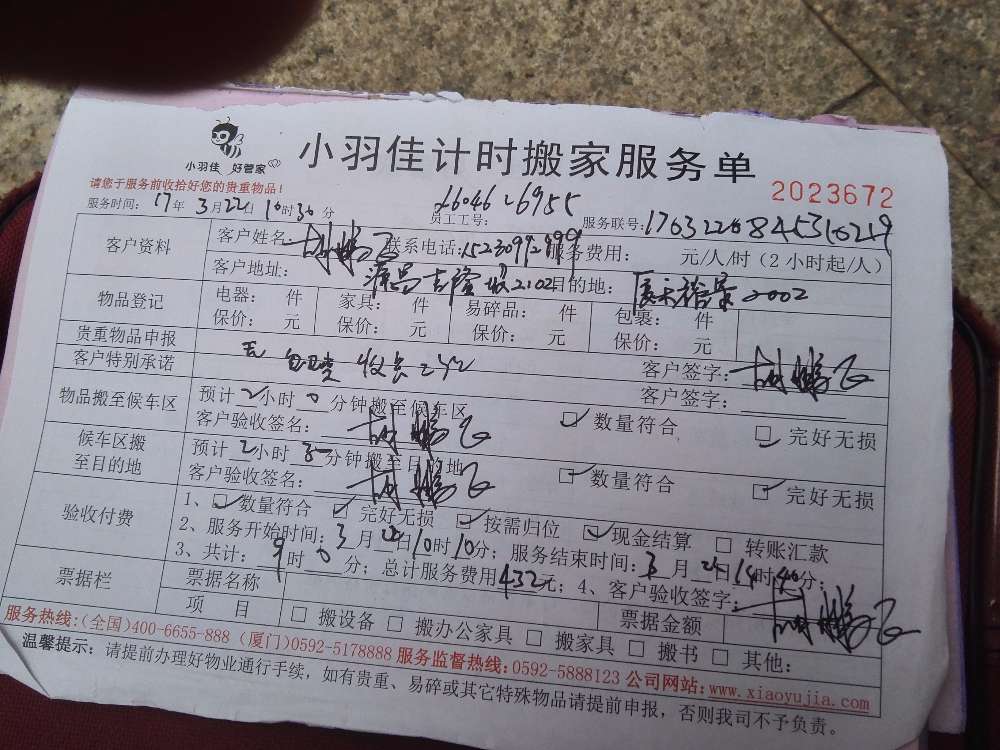 小羽佳 好管家
小羽佳计时搬家服务单
2023672
请您于服务前收拾好您的贵重物品!
服务时间: 17年 3月22日 10时30分 员工工号: 服务联号:
客户资料 客户姓名: 胡鹏飞 联系电话: 服务费用: 元/人/时 (2小时起/人)
客户地址: 目的地: 2002
物品登记 电器: 件 家具: 件 易碎品: 件 包裹: 件
保价: 元 保价: 元 保价: 元 保价: 元
贵重物品申报 无 客户签字: 胡鹏飞
客户特别承诺 客户签字:
物品搬至候车区 预计2小时0分钟搬至候车区
客户验收签名: 胡鹏飞 数量符合 完好无损
候车区搬至目的地 预计2小时 分钟搬至目的地
客户验收签名: 胡鹏飞 数量符合 完好无损
验收付费 1、数量符合 完好无损 按需归位 现金结算 转账汇款
2、服务开始时间: 3月22日10时10分; 服务结束时间: 3月 日14时40分;
3、共计: 9时0分; 总计服务费用432元; 4、客户验收签字: 胡鹏飞
票据栏 票据名称 票据金额
项 目 搬设备 搬办公家具 搬家具 搬书 其他:
服务热线:(全国)400-6655-888 (厦门)0592-5178888 服务监督热线:0592-5888123 公司网站:www.xiaoyujia.com
温馨提示: 请提前办理好物业通行手续, 如有贵重、易碎或其它特殊物品请提前申报, 否则我司不予负责。